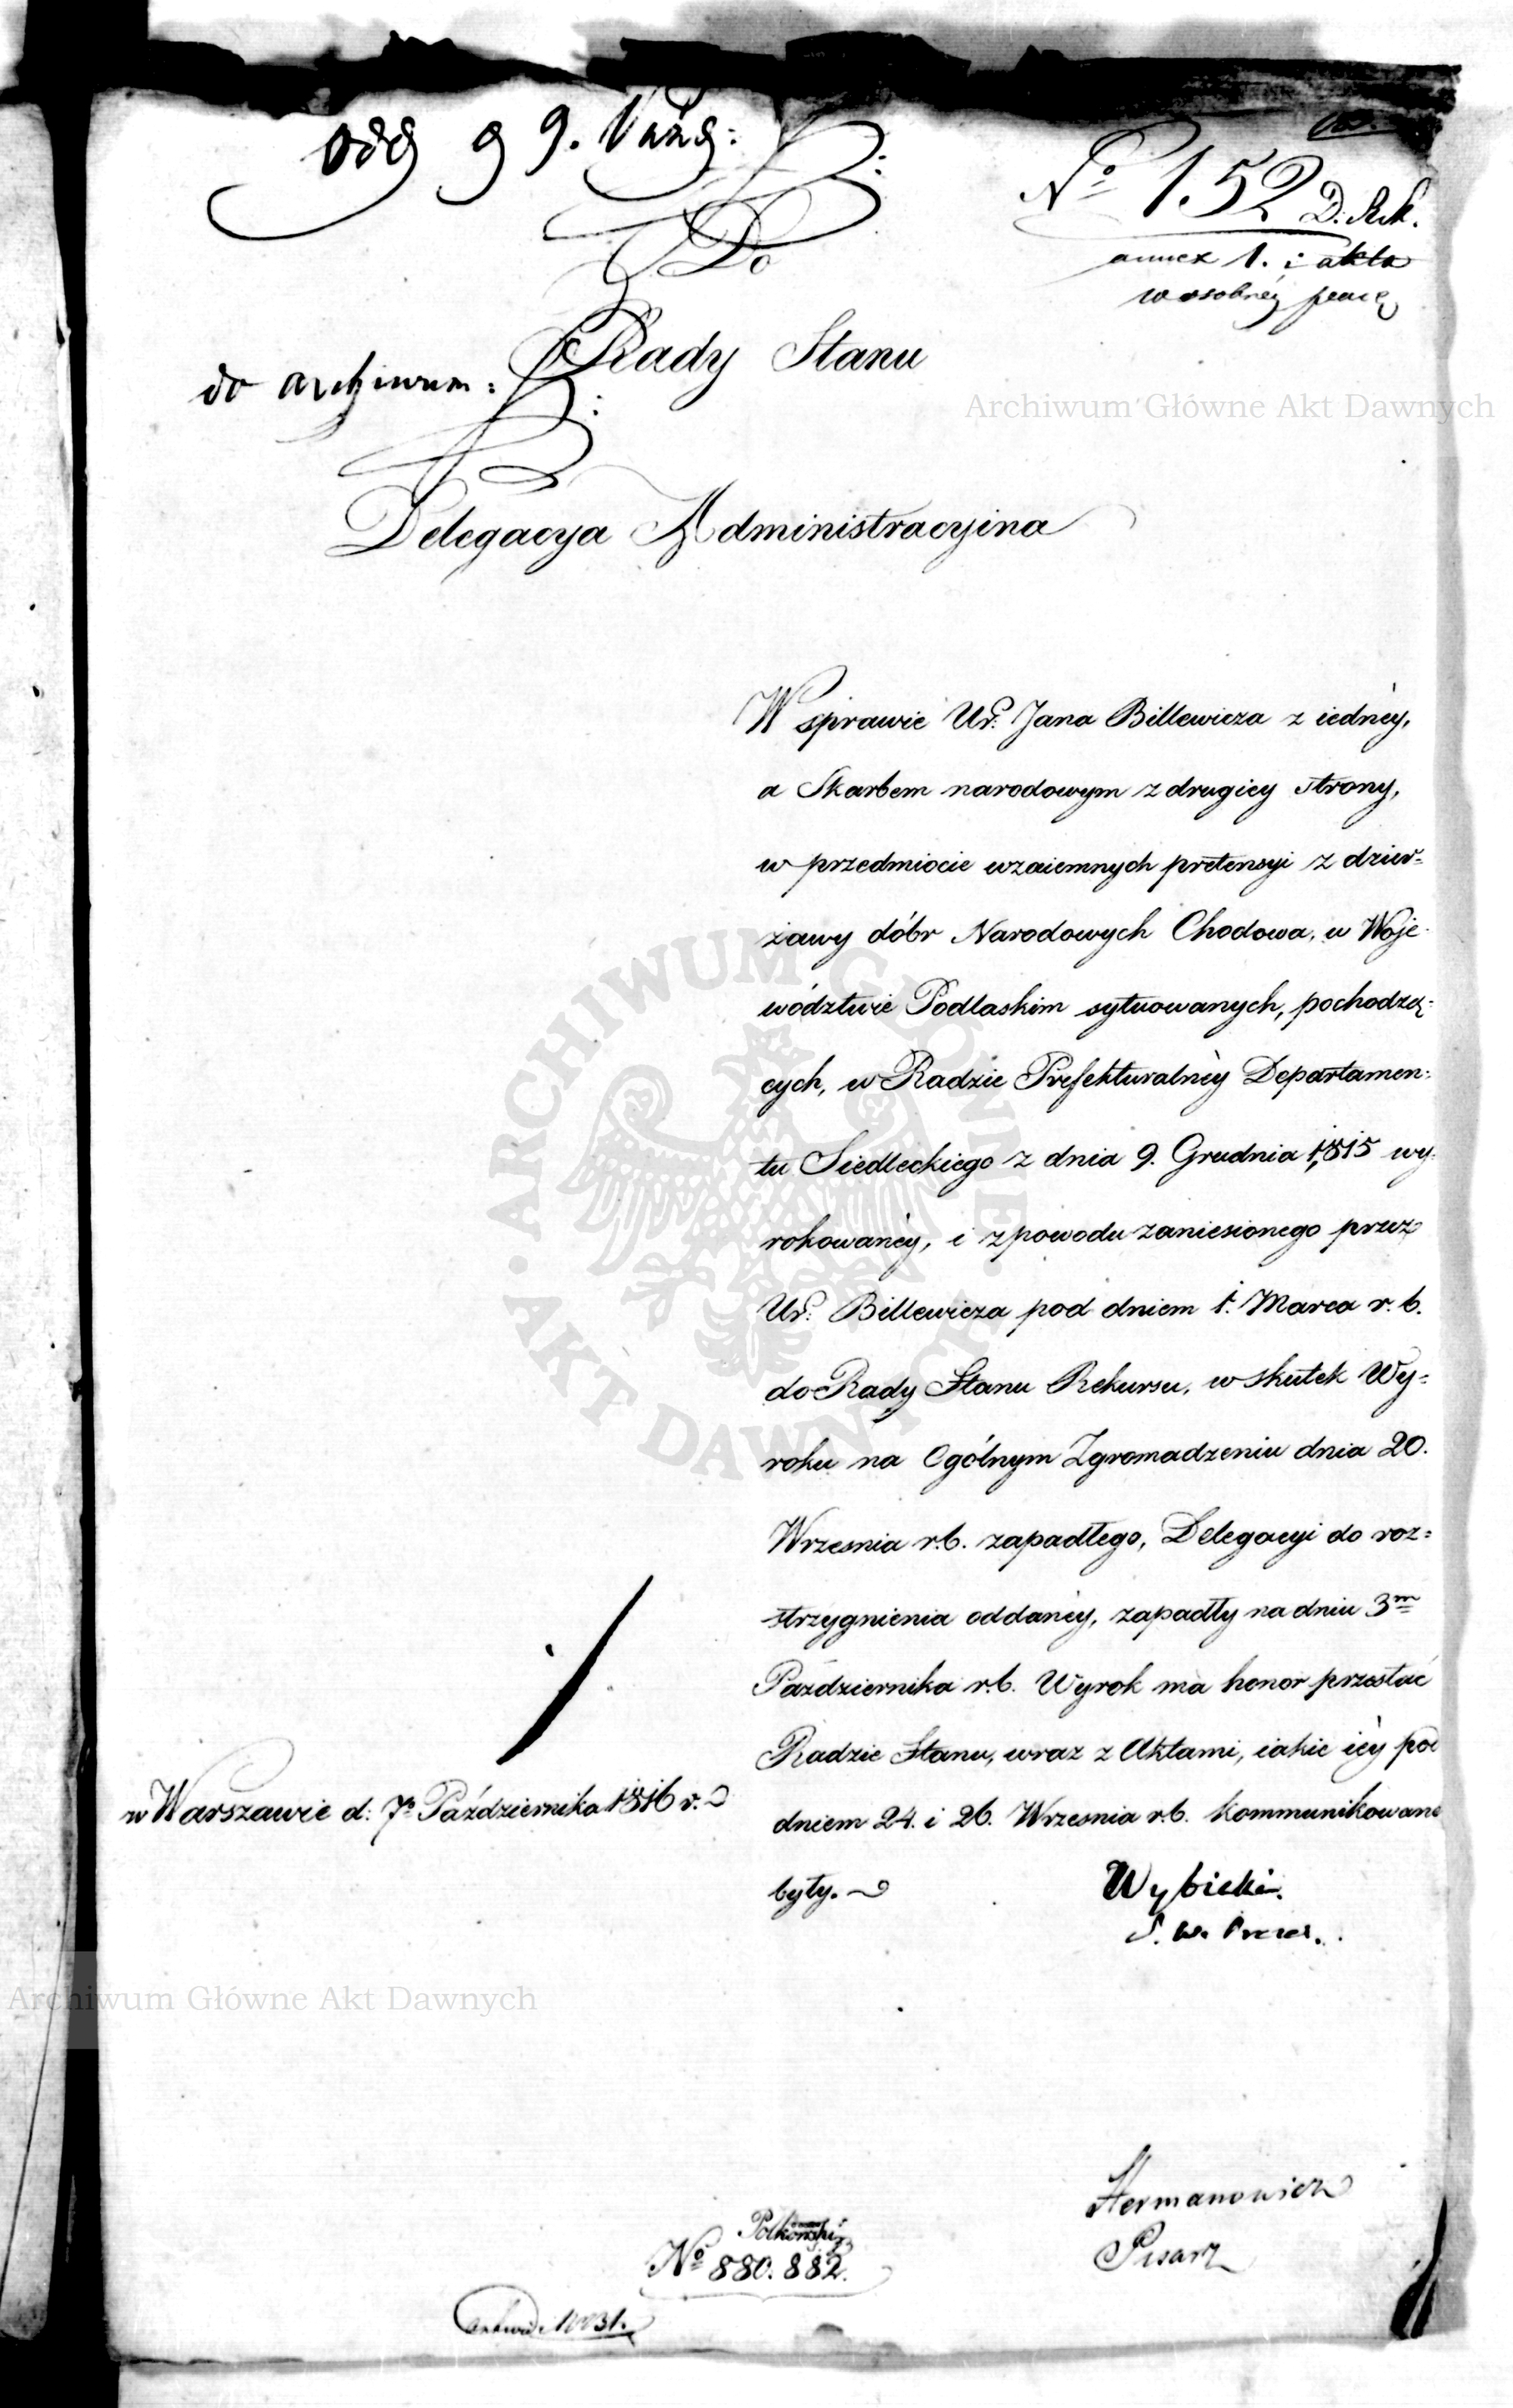 odd 9 9. Paźd:
No 152 D. Rek.
annex 1. i akta
w osobnéy pace
Do
Rady Stanu
do archiwum:
Archiwum Główne Akt Dawnych
Delegacya Administracyina
W sprawie Ur: Jana Billewicza z iednéy,
a Skarbem narodowym z drugiey strony,
w przedmiocie wzaiemnych pretensyi z dzier=
żawy dóbr Narodowych Chodowa, w Woje-
wództwie Podlaskim sytuowanych, pochodzą=
cych, w Radzie Prefekturalnéy Departamen=
tu Siedleckiego z dnia 9. Grudnia 1815 wy-
rokowanéy, i z powodu zaniesionego przez
Ur: Billewicza pod dniem 1. Marca r. b.
do Rady Stanu Rekursu, w skutek Wy=
roku na Ogólnym Zgromadzeniu dnia 20.
Wrzesnia r.b. zapadłego, Delegacyi do roz=
strzygnienia oddanéy, zapadły na dniu 3m
Pazdziernika r.b. Wyrok ma honor przesłać
Radzie Stanu, wraz z Aktami, iakie iéy pod
dniem 24. i 26. Wrzesnia r.b. kommunikowane
były.
w Warszawie d: 7o Października 1816 r.
Wybicki
S. W. Prezes.
Archiwum Główne Akt Dawnych
Hermanowicz
Pisarz
No 880. 882.
1031.
ARCHIWUM GŁÓWNE
AKT DAWNYCH